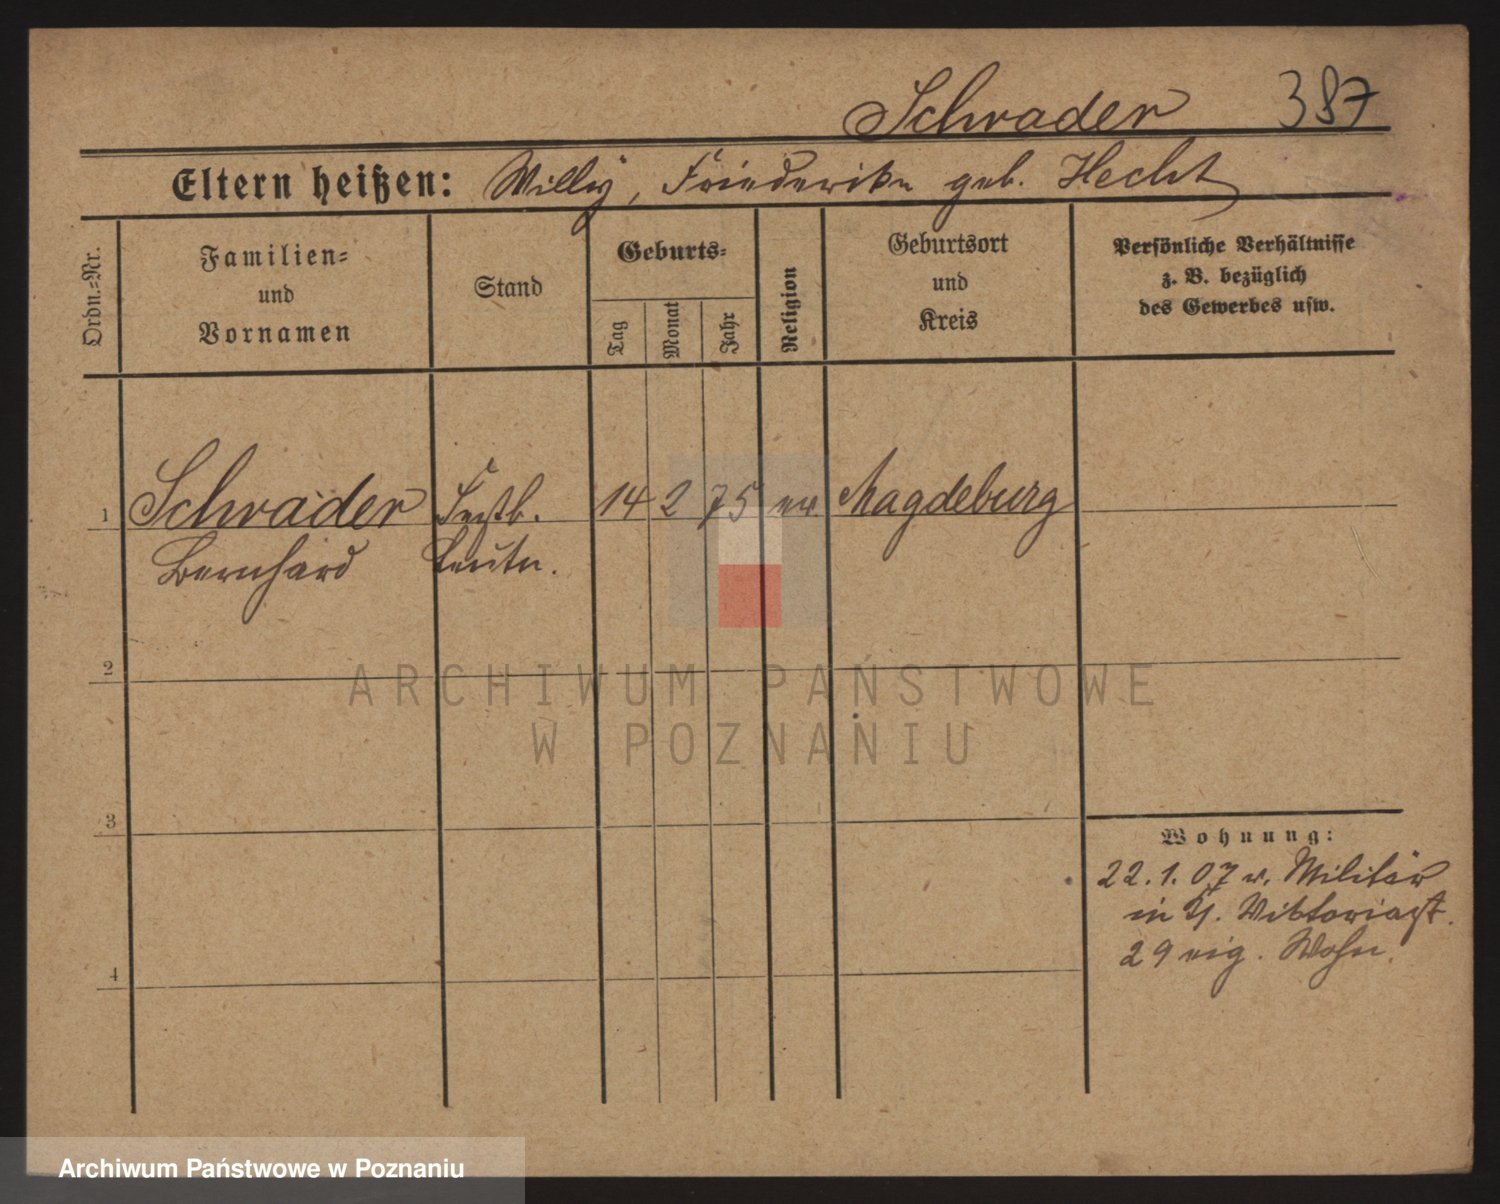 Schrader 387
Eltern heißen: Willy, Friederike geb. Hecht
Ordn.=Nr.
Familien=
und
Vornamen
Stand
Geburts=
Tag
Monat
Jahr
Religion
Geburtsort
und
Kreis
Persönliche Verhältnisse
z. B. bezüglich
des Gewerbes usw.
1 Schrader Festb. 14 2 75 ev. Magdeburg
Bernhard Leutn.
2
3
4
Wohnung:
22.1.07 v. Militär
in Viktoriast.
29 eig. Wohn.
ARCHIWUM PAŃSTWOWE
W POZNANIU
Archiwum Państwowe w Poznaniu